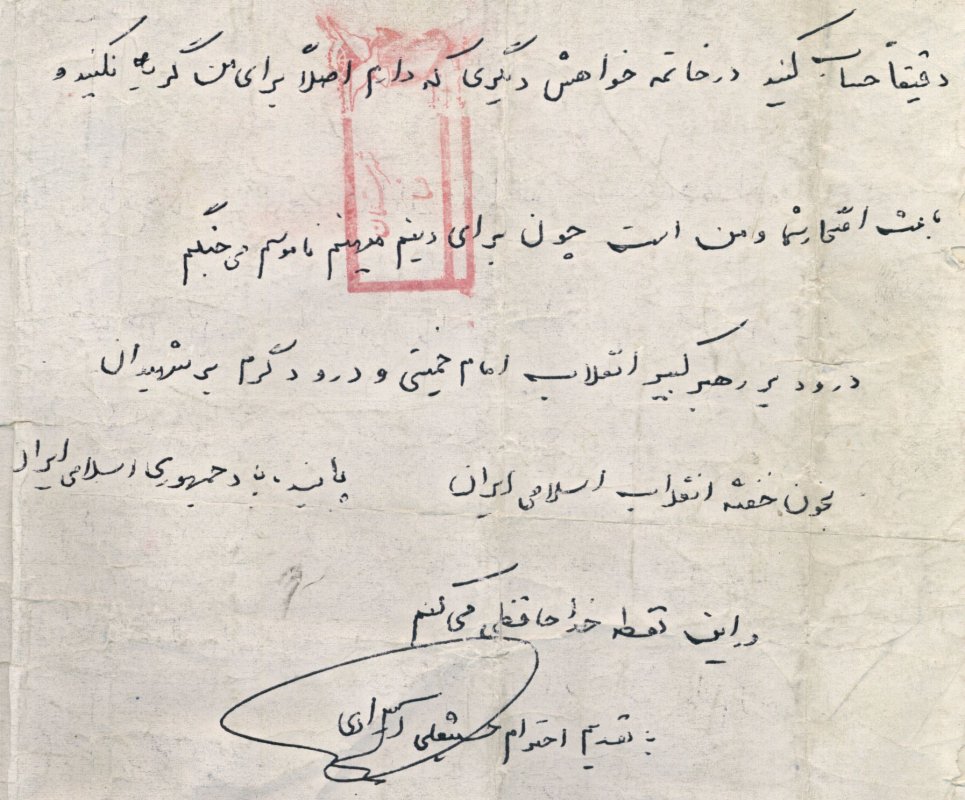 دقیقاً حساب کنید در خاتمه خواهش دیگری که دارم اصلاً برای من گریه نکنید و
باعث افتخار شما و من است چون برای دینم میهنم ناموسم می جنگم
درود بر رهبر کبیر انقلاب امام خمینی و درود گرم بر شهیدان
بخون خفته انقلاب اسلامی ایران پاینده باد جمهوری اسلامی ایران
در این نقطه خداحافظی می کنم
با تقدیم احترام